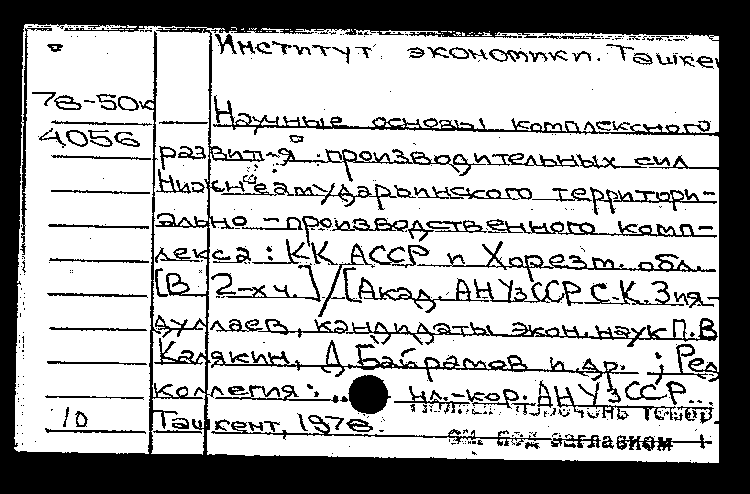 Институт экономики. Ташкен
78-50к
4056
Научные основы комплексного
развит-я производительных сил
Нижнеамударьинского территори-
ально-производственного комп-
лекса: КК АССР и Хорезм. обл.
[В 2-х ч.]/[Акад. АН УзССР С.К. Зия-
дуллаев, кандидаты экон. наук П.В
Калякин, Д. Байрамов и др. ; Ред
коллегия: .. чл.-кор. АН УзССР...
10
Ташкент, 1978.
перечень томов
см. под заглавием